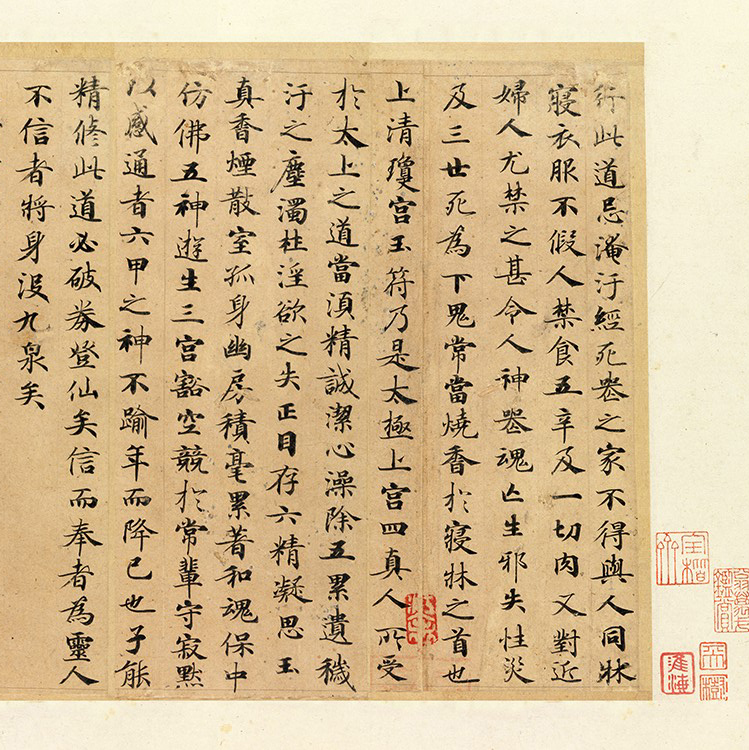 行此道忌淹汙經死丧之家不得與人同牀
寢衣服不假人禁食五辛及一切肉又對近
婦人尤禁之甚令人神丧魂亡生邪失性災
及三世死為下鬼常當燒香於寢牀之首也
上清瓊宮玉符乃是太極上宮四真人所受
於太上之道當湏精誠潔心澡除五累遺穢
汙之塵濁杜淫欲之失正目存六精凝思玉
真香煙散室孤身幽房積毫累著和魂保中
仿佛五神遊生三宮豁空競於常輩守寂默
以感通者六甲之神不踰年而降己也子能
精修此道必破券登仙矣信而奉者為靈人
不信者將身没九泉矣